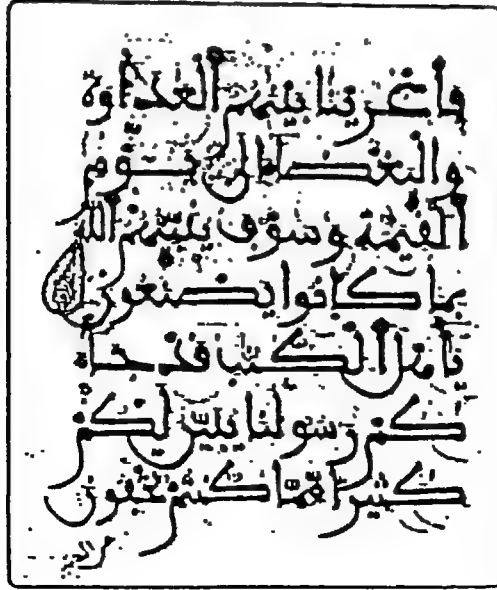 فأغرينا بينهم العداوة
والبغضاء إلى يوم
القيمة وسوف ينبئهم الله
بما كانوا يصنعون
يأهل الكتب قد جاء
كم رسولنا يبين لكم
كثيرا مما كنتم تخفون